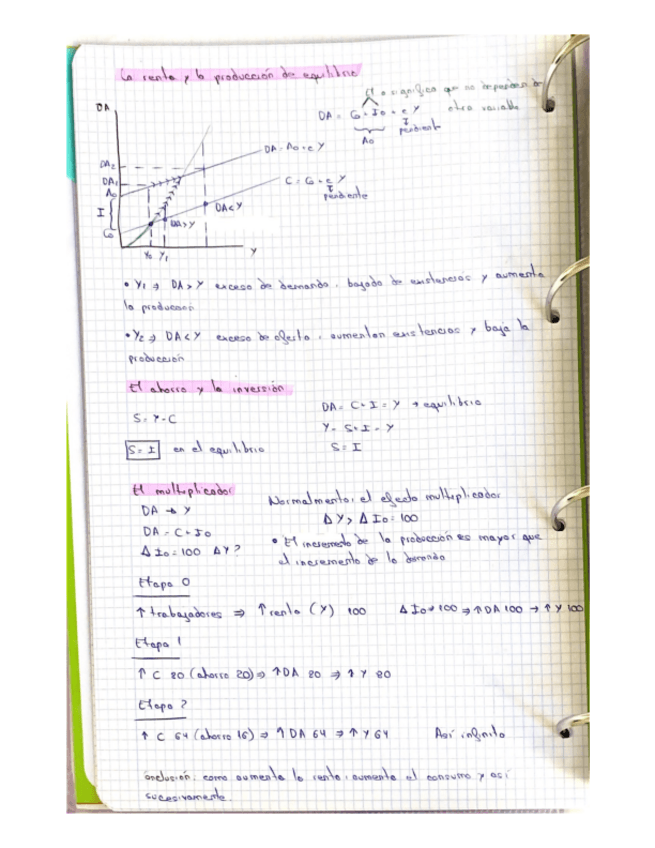 La renta y la producción de equilibrio
El o significa que no dependen de
otra variable
DA = C₀ + I₀ + c Y
A₀
pendiente
DA
DA = A₀ + c Y
C = C₀ + c Y
pendiente
DA₂
DA₁
A₀
I
C₀
DA < Y
DA > Y
Y₀ Y₁
Y
• Y₁ → DA > Y exceso de demanda, bajada de existencias y aumenta
la producción
• Y₂ → DA < Y exceso de oferta, aumentan existencias y baja la
producción
El ahorro y la inversión
S = Y - C
S = I en el equilibrio
DA = C + I = Y → equilibrio
Y - S + I = Y
S = I
El multiplicador
DA → Y
DA = C + I₀
Δ I₀ = 100 Δ Y ?
Normalmente, el efecto multiplicador
Δ Y > Δ I₀ = 100
• El incremento de la producción es mayor que
el incremento de la demanda
Etapa 0
↑ trabajadores ⇒ ↑ renta (Y) 100 Δ I₀ = 100 ⇒ ↑ DA 100 → ↑ Y 100
Etapa 1
↑ C 80 (ahorro 20) ⇒ ↑ DA 80 ⇒ ↑ Y 80
Etapa 2
↑ C 64 (ahorro 16) ⇒ ↑ DA 64 ⇒ ↑ Y 64 Así infinito
onclusión: como aumenta la renta, aumenta el consumo y así
sucesivamente.